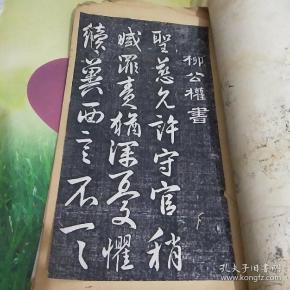 柳公權書
聖慈允許守官稍
減罪責猶深憂懼
續冀西言不一一
孔夫子旧书网